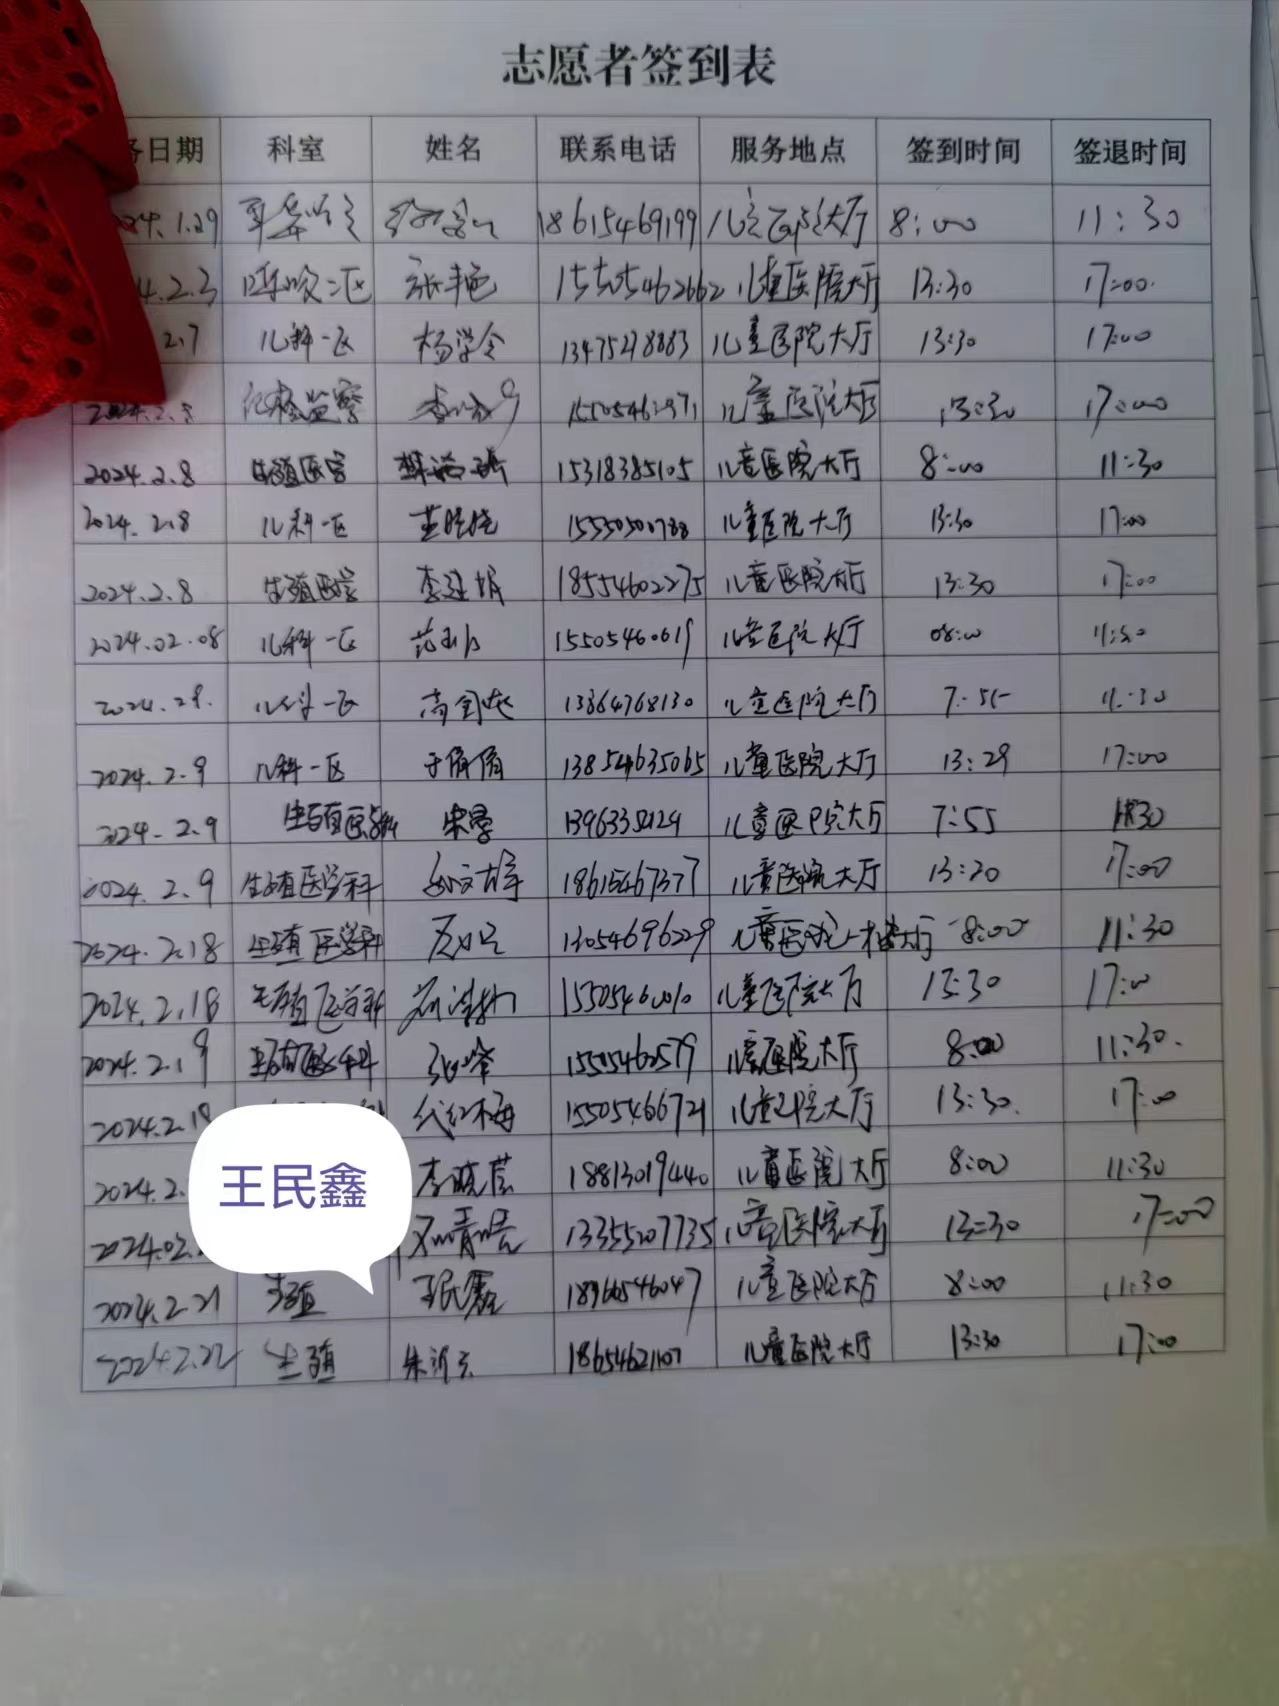 志愿者签到表
日期 科室 姓名 联系电话 服务地点 签到时间 签退时间
24.1.29 18615469199 儿童医院大厅 8:00 11:30
4.2.3 呼吸二区 张艳 15505462662 儿童医院大厅 13:30 17:00
2.7 儿科一区 杨学令 13475278883 儿童医院大厅 13:30 17:00
纪检监察 儿童医院大厅 13:30 17:00
2024.2.8 生殖医学 15318385105 儿童医院大厅 8:00 11:30
2024.2.8 儿科一区 15550500788 儿童医院大厅 13:30 17:00
2024.2.8 生殖医学 李建娟 18554602275 儿童医院大厅 13:30 17:00
2024.02.08 儿科一区 15505460619 儿童医院大厅 08:00 11:30
2024.2.9. 儿科一区 13864768130 儿童医院大厅 7:55 11:30
2024.2.9 儿科一区 于倩倩 13854635065 儿童医院大厅 13:29 17:00
2024.2.9 生殖医学科 儿童医院大厅 7:55 11:30
2024.2.9 生殖医学科 18615467377 儿童医院大厅 13:30 17:00
2024.2.18 生殖医学科 13054696229 儿童医院一楼大厅 8:00 11:30
2024.2.18 生殖医学科 儿童医院大厅 13:30 17:00
2024.2.19 生殖医学科 张峰 15505462579 儿童医院大厅 8:00 11:30.
2024.2.19 代红梅 15505466721 儿童医院大厅 13:30. 17:00
2024.2. 李晓芸 18813019440 儿童医院大厅 8:00 11:30
2024.02. 13355207735 儿童医院大厅 13:30 17:00
王民鑫
2024.2.21 生殖 王民鑫 18966546047 儿童医院大厅 8:00 11:30
2024.2.22 生殖 18654621107 儿童医院大厅 13:30 17:00